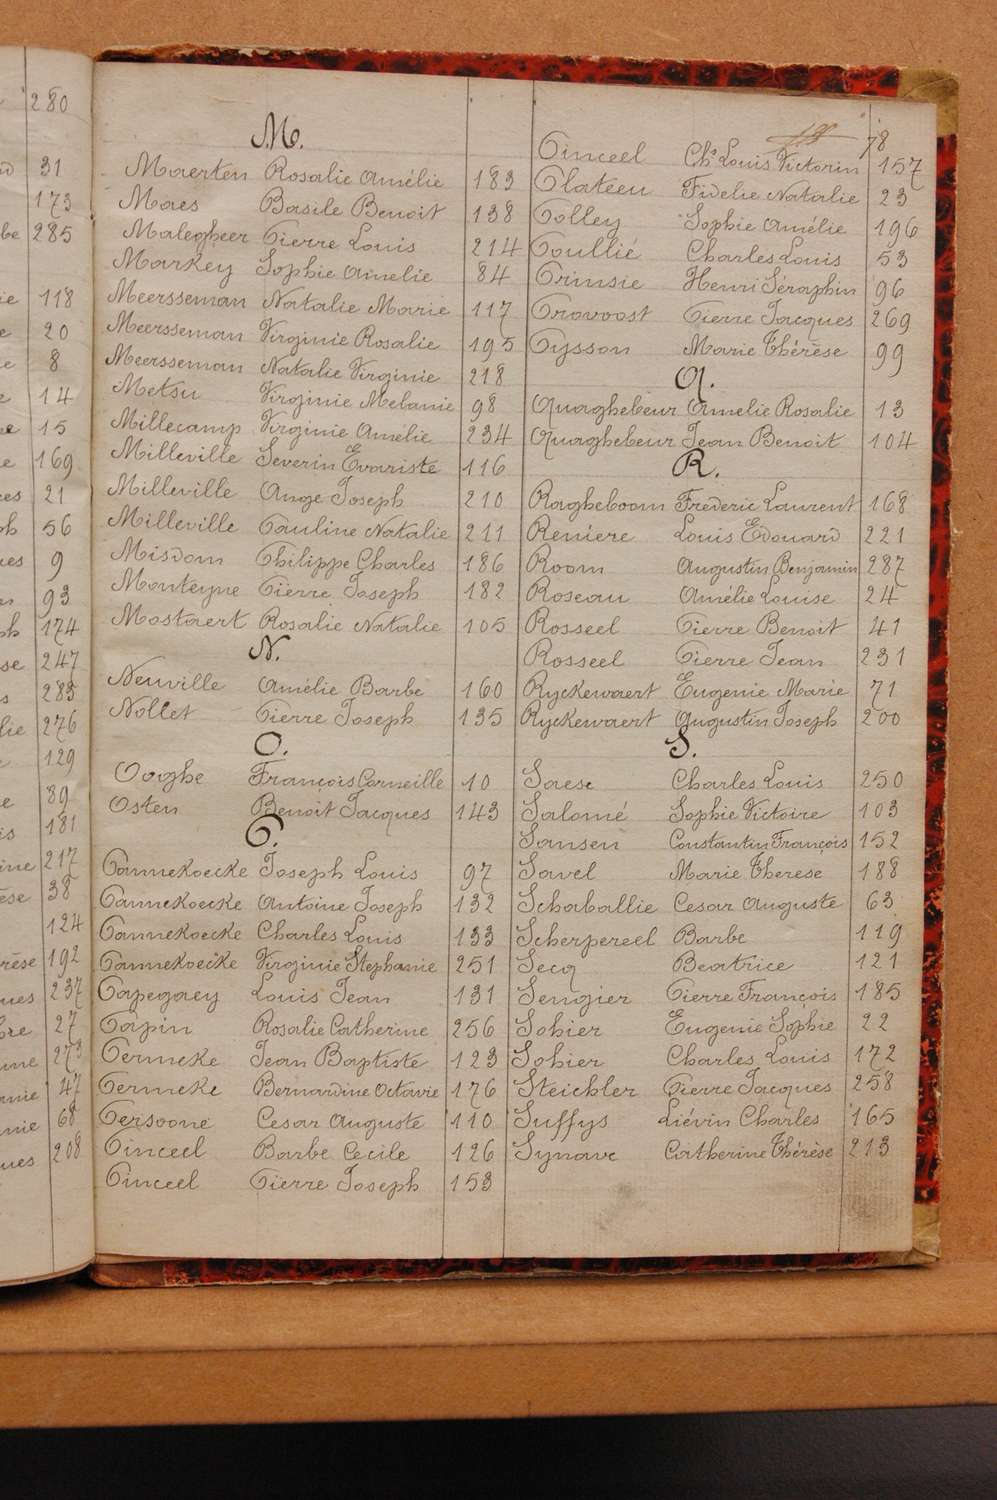 280
31
173
be 285
ie 118
e 20
e 8
e 14
e 15
e 169
es 21
ph 56
ues 9
93
ph 174
se 247
s 283
lie 276
129
e 89
is 181
ine 217
èse 38
124
rèse 192
ques 237
bre 27
nne 273
anie 47
anie 68
ques 208
M.
Maerten Rosalie Amélie 183
Maes Basile Benoit 138
Malegheer Pierre Louis 214
Markey Sophie Amelie 84
Meersseman Natalie Marie 117
Meersseman Virginie Rosalie 195
Meersseman Natalie Virginie 218
Metsu Virginie Melanie 98
Millecamp Virginie Amélie 234
Milleville Severin Evariste 116
Milleville Ange Joseph 210
Milleville Pauline Natalie 211
Misdom Philippe Charles 186
Monteyne Pierre Joseph 182
Mostaert Rosalie Natalie 105
N.
Neuville Amélie Barbe 160
Nollet Pierre Joseph 135
O.
Ooghe François Corneille 10
Osten Benoit Jacques 143
P.
Pannekoecke Joseph Louis 97
Pannekoecke Antoine Joseph 132
Pannekoecke Charles Louis 133
Pannekoecke Virginie Stephanie 251
Papegaey Louis Jean 131
Papin Rosalie Catherine 256
Permeke Jean Baptiste 123
Permeke Bernardine Octavie 176
Persoone Cesar Auguste 110
Pinceel Barbe Cecile 126
Pinceel Pierre Joseph 153
78
Pinceel Ch. Louis Victorin 157
Plateeu Fidelie Natalie 23
Polley Sophie Amélie 196
Poullié Charles Louis 53
Prinsie Henri Séraphin 96
Provoost Pierre Jacques 269
Pysson Marie Thérèse 99
Q.
Quaghebeur Amelie Rosalie 13
Quaghebeur Jean Benoit 104
R.
Ragheboom Frederic Laurent 168
Reniere Louis Edouard 221
Room Augustin Benjamin 287
Roseau Amélie Louise 24
Rosseel Pierre Benoit 41
Rosseel Pierre Jean 231
Ryckewaert Eugenie Marie 71
Ryckewaert Augustin Joseph 200
S.
Saese Charles Louis 250
Salomé Sophie Victoire 103
Sansen Constantin François 152
Savel Marie Therese 188
Schaballie Cesar Auguste 63
Scherpereel Barbe 119
Secq Beatrice 121
Sengier Pierre François 185
Sohier Eugenie Sophie 22
Sohier Charles Louis 172
Steichler Pierre Jacques 258
Suffys Liévin Charles 165
Synave Catherine Thérèse 213